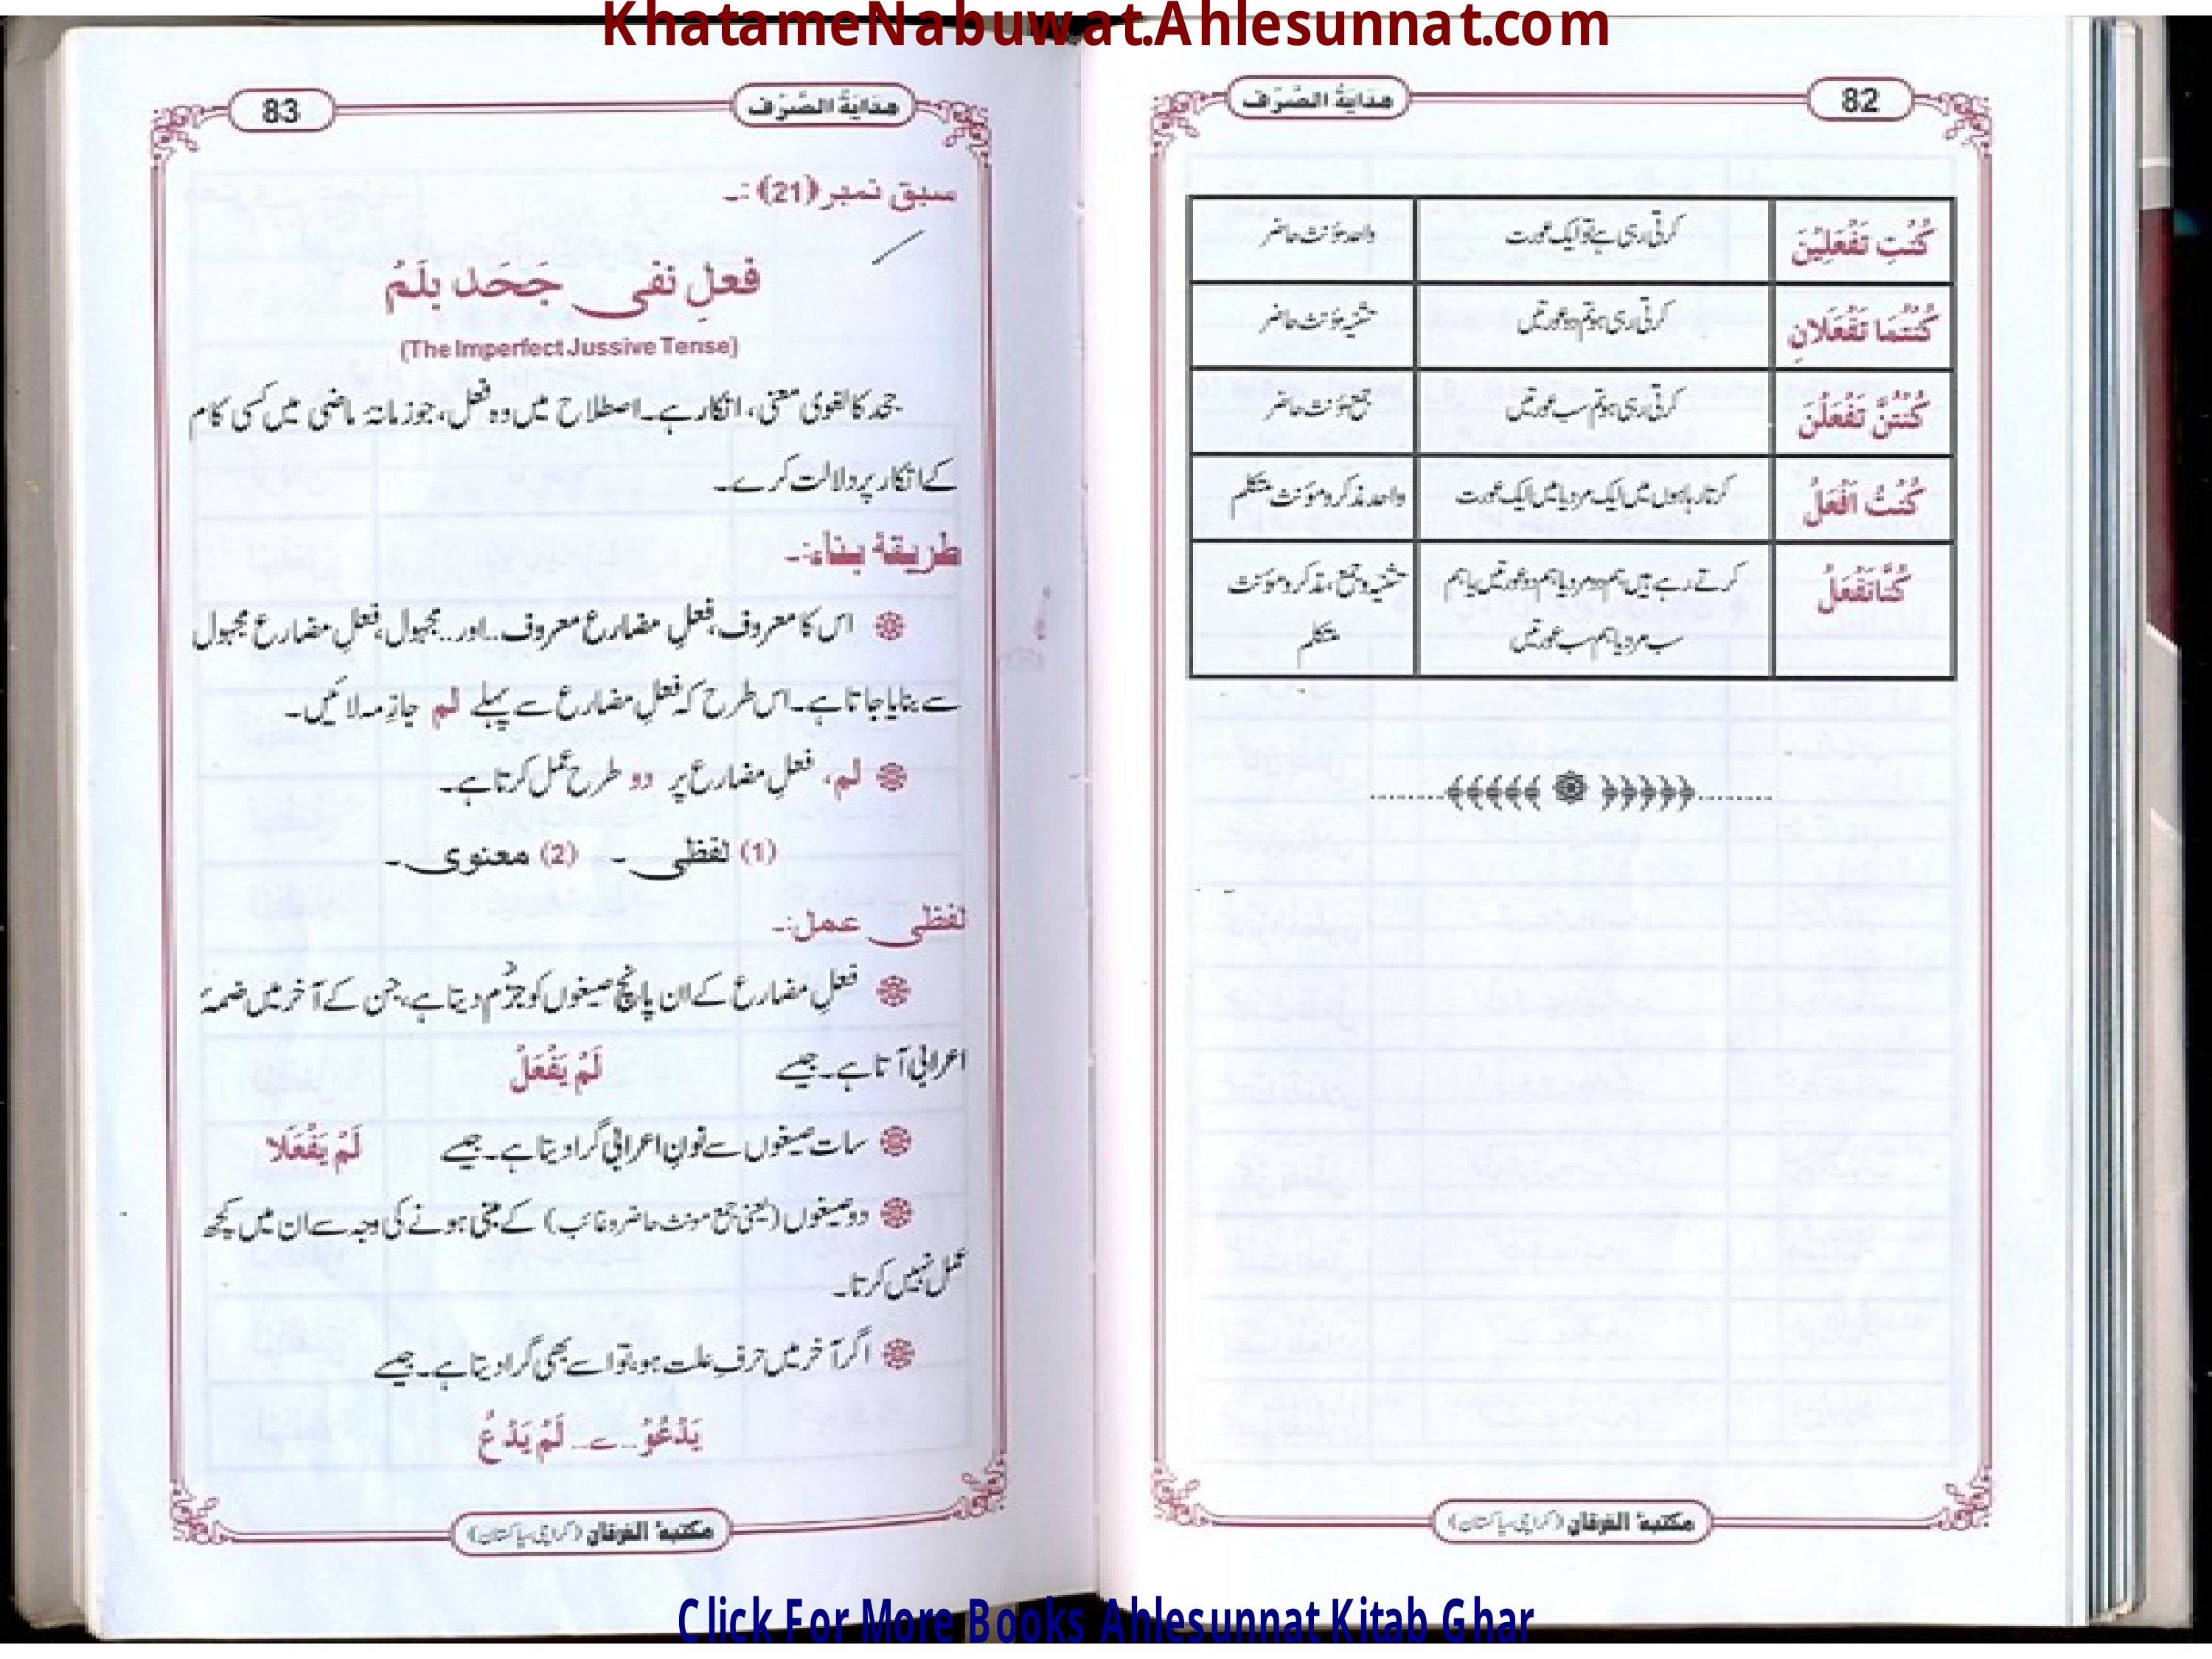 KhatameNabuwat.Ahlesunnat.com
82
هدایة الصَّرف
كُنْتِ تَفْعَلِيْنَ	کرتی رہی ہے تو ایک عورت	واحد مؤنث حاضر
كُنْتُمَا تَفْعَلَانِ	کرتی رہی ہو تم دو عورتیں	تثنیہ مؤنث حاضر
كُنْتُنَّ تَفْعَلْنَ	کرتی رہی ہو تم سب عورتیں	جمع مؤنث حاضر
كُنْتُ اَفْعَلُ	کرتا رہا ہوں میں ایک مرد یا میں ایک عورت	واحد مذکر و مؤنث متکلم
كُنَّا نَفْعَلُ	کرتے رہے ہیں ہم دو مرد یا ہم دو عورتیں یا ہم	تثنیہ و جمع، مذکر و مؤنث
سب مرد یا ہم سب عورتیں	متکلم
مکتبة الفرقان (کراچی، پاکستان)
هدایة الصَّرف
83
سبق نمبر (21) :۔
فعلِ نفی جَحَد بلَمْ
(The Imperfect Jussive Tense)
جحد کا لغوی معنی، انکار ہے۔ اصطلاح میں وہ فعل، جو زمانۂ ماضی میں کسی کام
کے انکار پر دلالت کرے۔
طریقۂ بناء:۔
اس کا معروف، فعلِ مضارع معروف..اور.. مجہول، فعلِ مضارع مجہول
سے بنایا جاتا ہے۔ اس طرح کہ فعلِ مضارع سے پہلے لم جازمہ لائیں۔
لم، فعلِ مضارع پر دو طرح عمل کرتا ہے۔
(1) لفظی۔ (2) معنوی۔
لفظی عمل:۔
فعلِ مضارع کے ان پانچ صیغوں کو جزم دیتا ہے، جن کے آخر میں ضمۂ
اعرابی آتا ہے۔ جیسے لَمْ يَفْعَلْ
سات صیغوں سے نونِ اعرابی گرا دیتا ہے۔ جیسے لَمْ يَفْعَلَا
دو صیغوں (یعنی جمع مونث حاضر و غائب) کے مبنی ہونے کی وجہ سے ان میں کچھ
عمل نہیں کرتا۔
اگر آخر میں حرفِ علت ہو، تو اسے بھی گرا دیتا ہے۔ جیسے
يَدْعُوْ ۔۔سے۔۔ لَمْ يَدْعُ
مکتبة الفرقان (کراچی، پاکستان)
Click For More Books Ahlesunnat Kitab Ghar